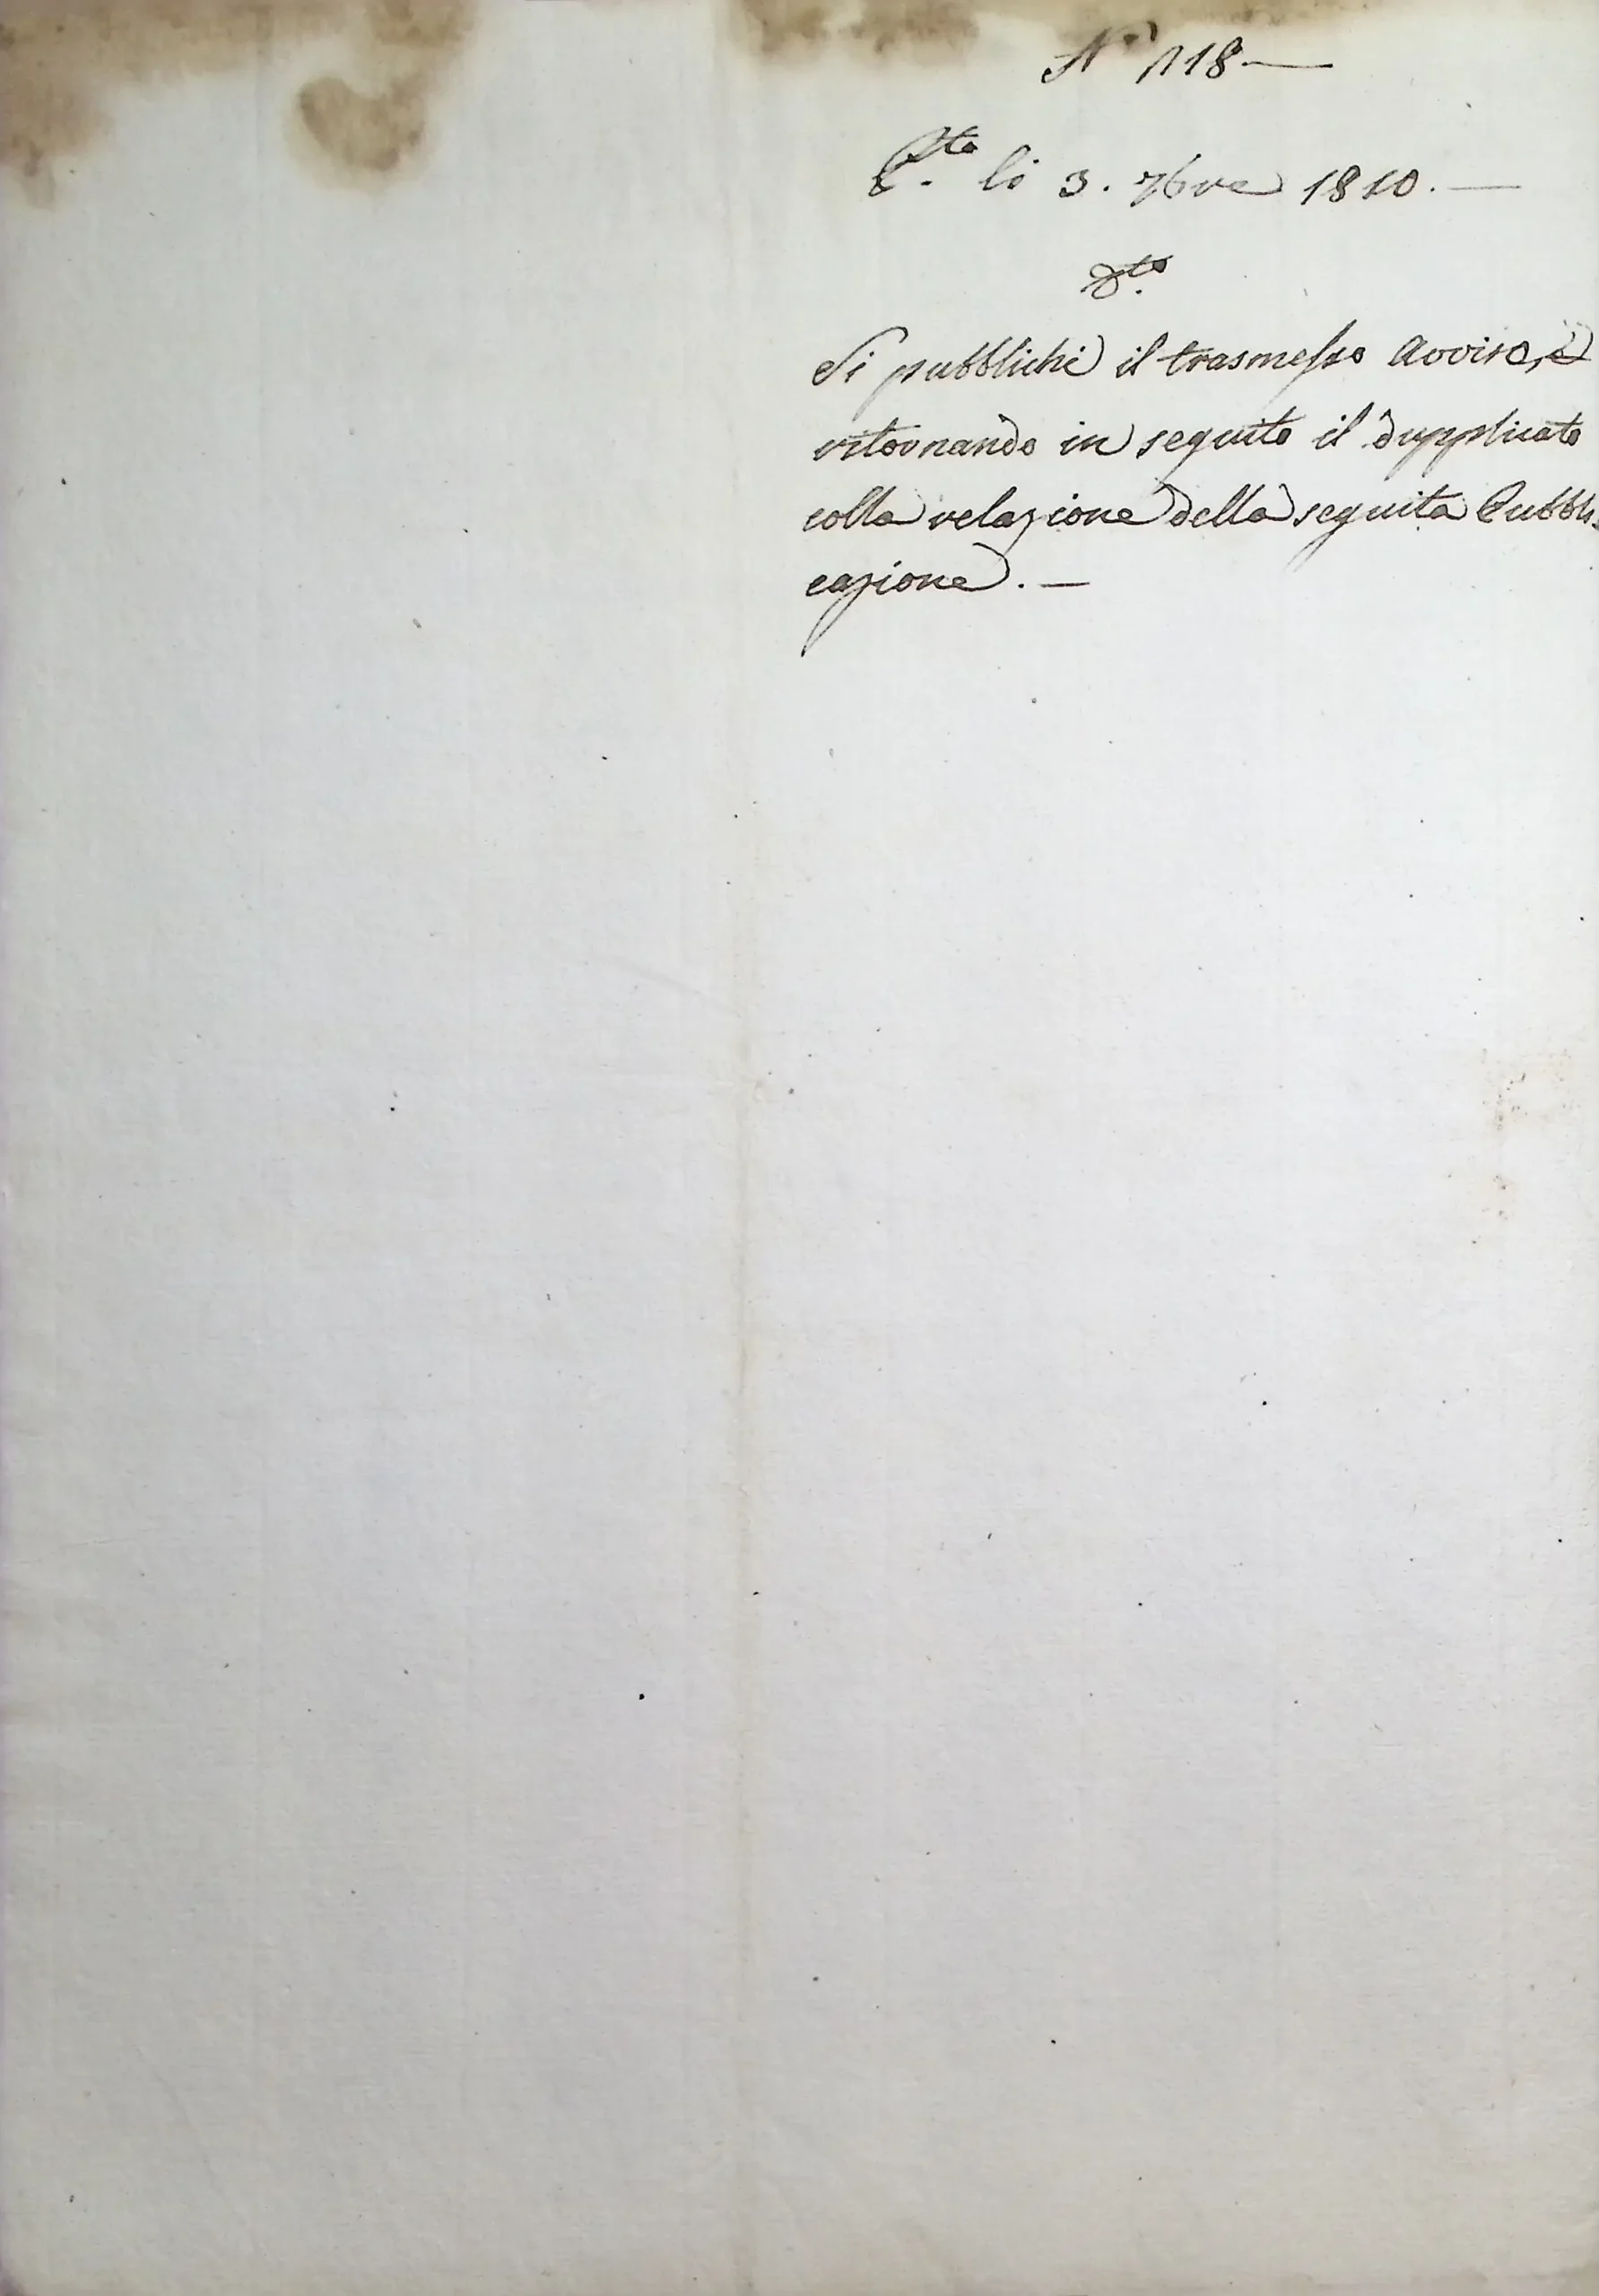 N.° 118.—
P.ta li 3. 7bre 1810.—
D.to
Si pubblichi il trasmesso Avviso, e
ritornando in seguito il dupplicato
colla relazione della seguita Pubbli-
cazione.—